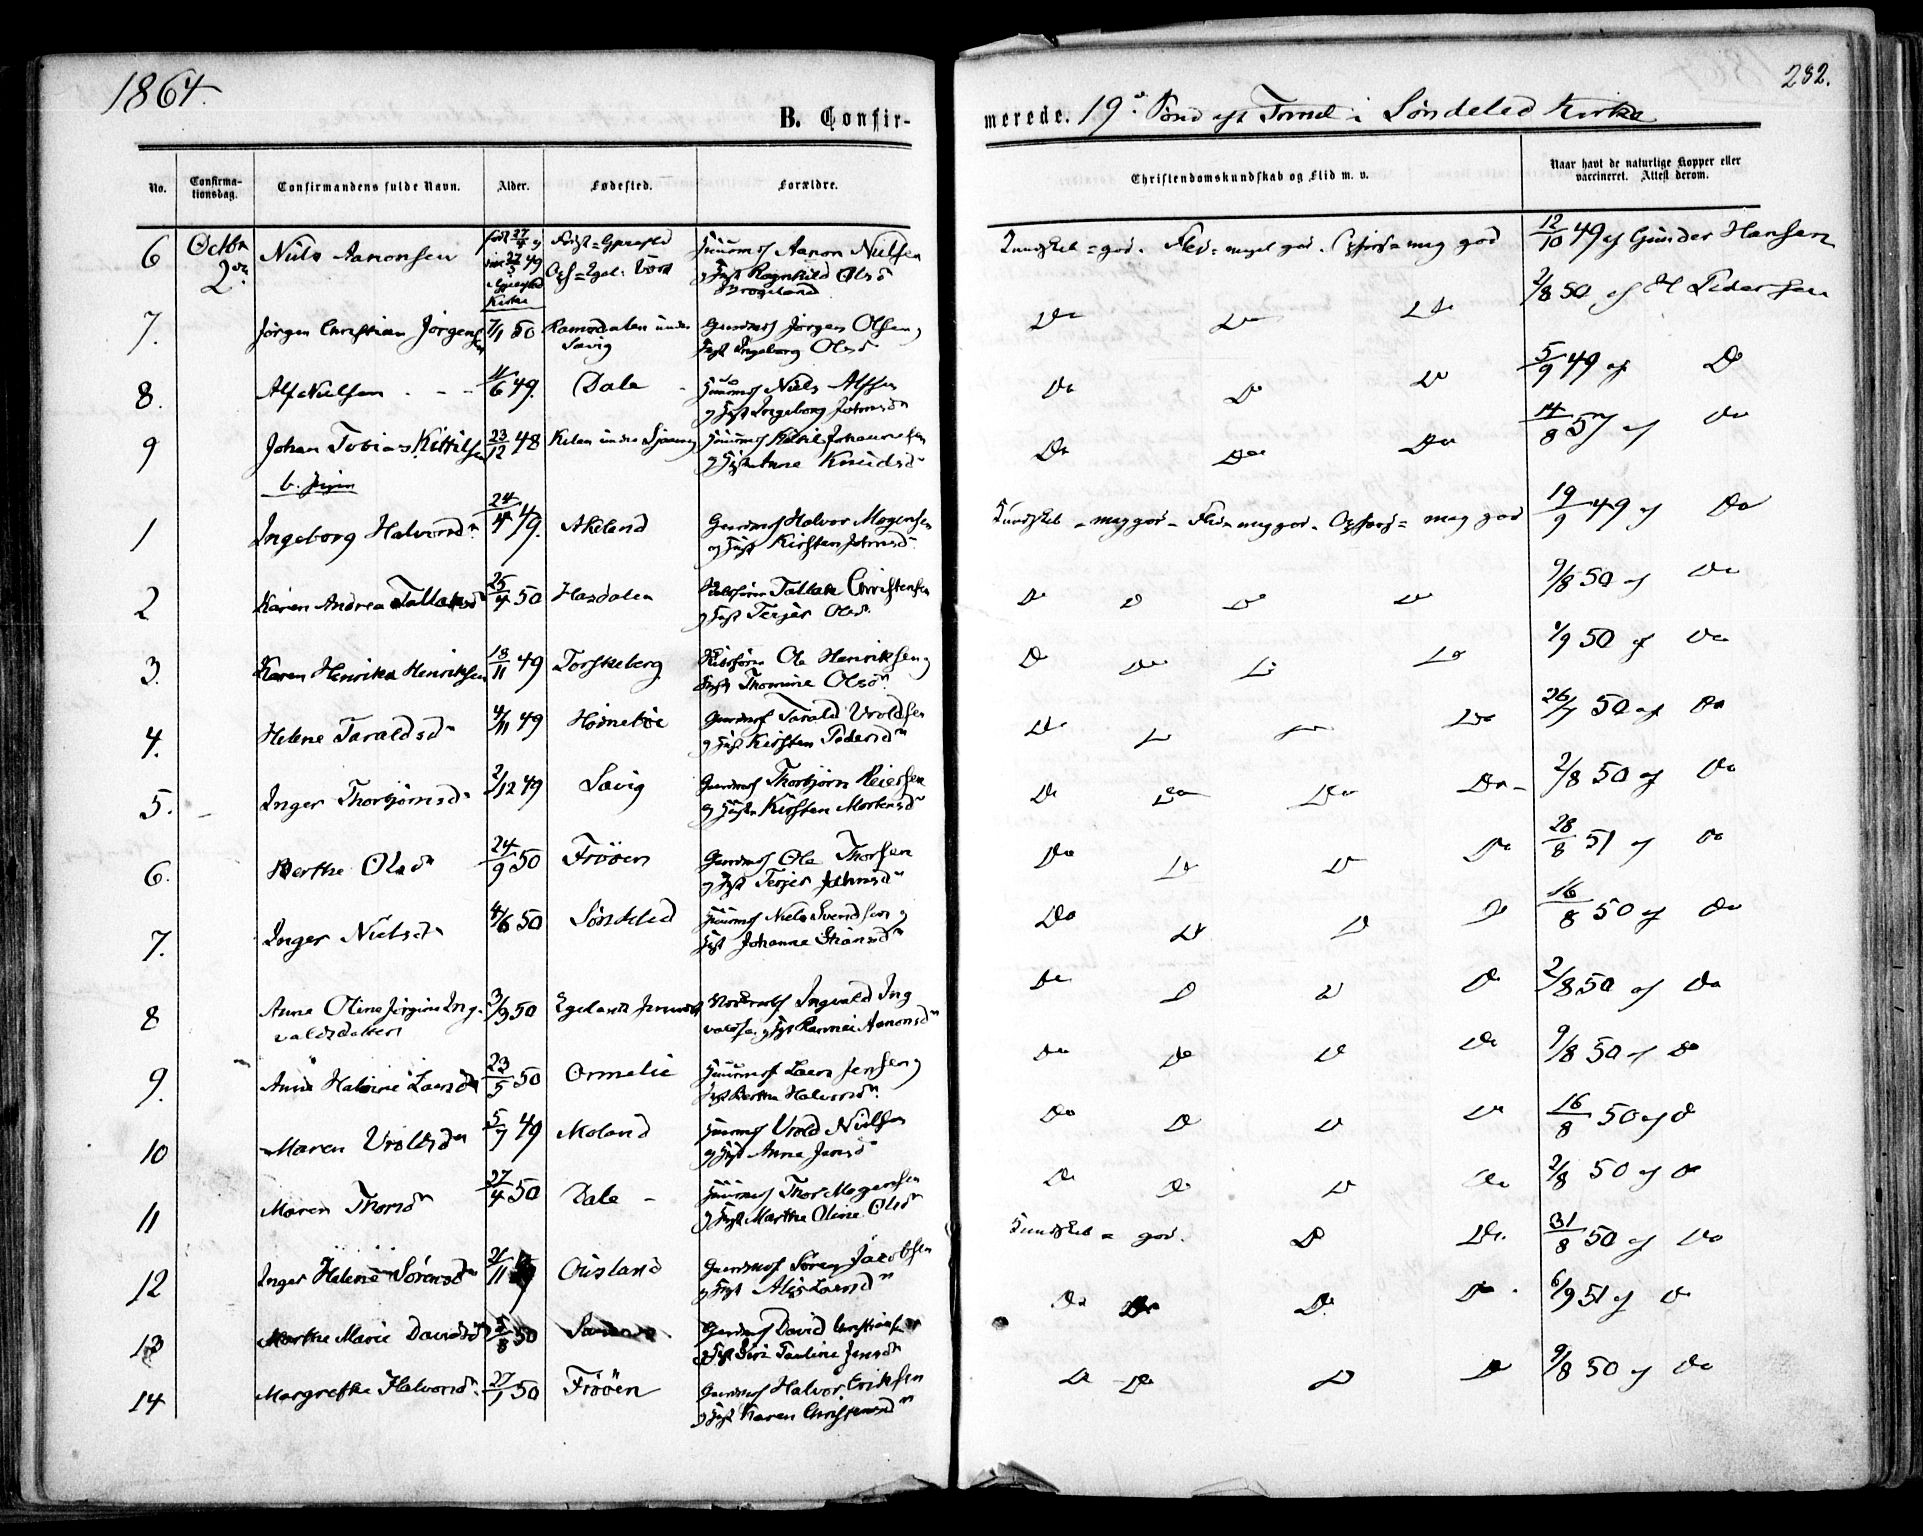 1864.
232.
B. Confir-
merede. 19de Sønd eft Trinit i Søndeled Kirke
No.
Confirma-
tionsdag.
Confirmandens fulde Navn.
Alder.
Fødested.
Forældre.
Christendomskundskab og Flid m. v.
Naar havt de naturlige Kopper eller
vaccineret. Attest derom.
6 Octbr Niels Aanonsen født 27/4 Huusmd Aanon Nielsen Kundskab = god. Flid = meget god. Opførs = meg god 12/10 49 af Gunder Hansen
2den 49 og Hust Ragnhild Olsd
Kirke
7. Jørgen Christian Jørgensen 7/1 50 Ramsdalen under Gaardmd Jørgen Olsen og Do Do Do 2/8 50 af H Pedersen
Savig Hust Ingeborg Olsd
8. Alf Nielsen - - 11/6 49. Dale Huusmd Niels Alfsen Do Do Do 5/9 49 af Do
og Hust Ingeborg Johnsd
9 Johan Tobias Kittilsen 23/12 48 Huusmd Kittil Johannesen Do Do Do 14/8 57 af Do
og Hust Anne Knudsd
b. Piger
1 Ingeborg Halvorsd 24/4 49. Akeland Gaardmd Halvor Mogensen Kundskab = meg god = Flid = meg god = Opførs = meg god 19/9 49 af Do
og Hust Kirsten Johnsd
2 Karen Andrea Tallaksd 25/4 50 Hasdalen Tallak Christensen Do Do Do Do 9/8 50 af Do
og Hust Terjer Olsd
3. Karen Henrikke Henriksen 18/11 49 Torskeberg Ole Henriksen og Do Do Do Do 9/9 50 af Do
Hust Thomine Olsd
4. Helene Taraldsd 4/11 49 Hornebøe Gaardmd Tarald Vroldsen Do Do Do Do 26/7 50 af Do
og Hust Kirsten Pedersd
5. Inger Thorbjørnsd 2/12 49 Savig Gaardmd Thorbjørn Reiersen Do Do Do Do 2/8 50 af Do
og Hust Kirsten Mortensd
6. Berthe Olsd 24/9 50 Frøoen Gaardmd Ole Thorsen Do Do Do Do 28/8 51 af Do
og Hust Terjer Johnsd
7. Inger Nielsd 4/6 50 Søndeled Huusmd Niels Svendsen og Do Do Do Do 16/8 50 af Do
Hust Johanne
8 Anne Oline Jørgine Ing- 3/9 50 Ingvald Ing Do Do Do Do 2/8 50 af Do
valdsdatter valdsen og Hust Aanonsd
9. Anne Halvine Larsd 23/5 50 Ormelie Huusmd Lars Jensen og Do Do Do Do 9/8 50 af Do
Hust Berthe Halvorsd
10 Maren Vroldsd 5/7 49 Moland Huusmd Vrold Nielsen Do Do Do Do 16/8 50 af Do
og Hust Anne Jensd
11 Maren Thorsd 27/4 50 Dale Huusmd Thor Mogensen Do Do Do Do 2/8 50 af Do
og Hust Marthe Oline Olsd
12 Inger Helene Sørensd 21/11 Gaardmd Søren Jacobsen Kundskab = god. Do Do 31/8 50 af Do
og Hust Alis Larsd
13 Marthe Marie Davidsd 5/8 50 Gaardmd David Christiansen Do Do Do Do 6/9 51 af Do
og Hust Siri Pauline Jensd
14 Margrethe Halvorsd 27/1 50 Frøoen Gaardmd Halvor Eriksen Do Do Do Do 9/8 50 af Do
og Hust Karen Christensd